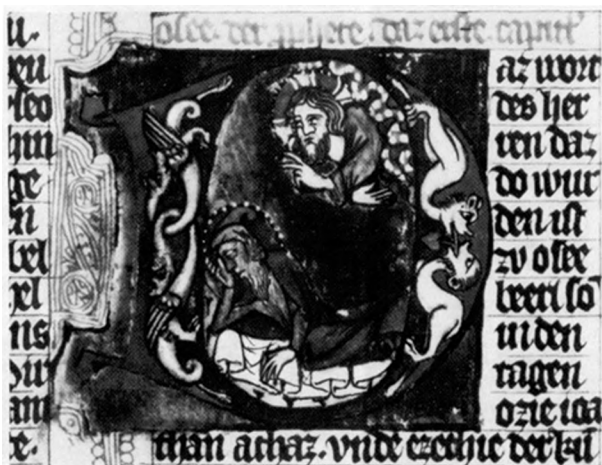 u.
leo
hin
ge
en
bel
el
ns
am
osee. der daz erste capitt
az wort
des her
ren daz
do wur
den ist
zv osee
beeri so
in den
tagen
ozie ioa
than achaz. vnde ezechie der kü